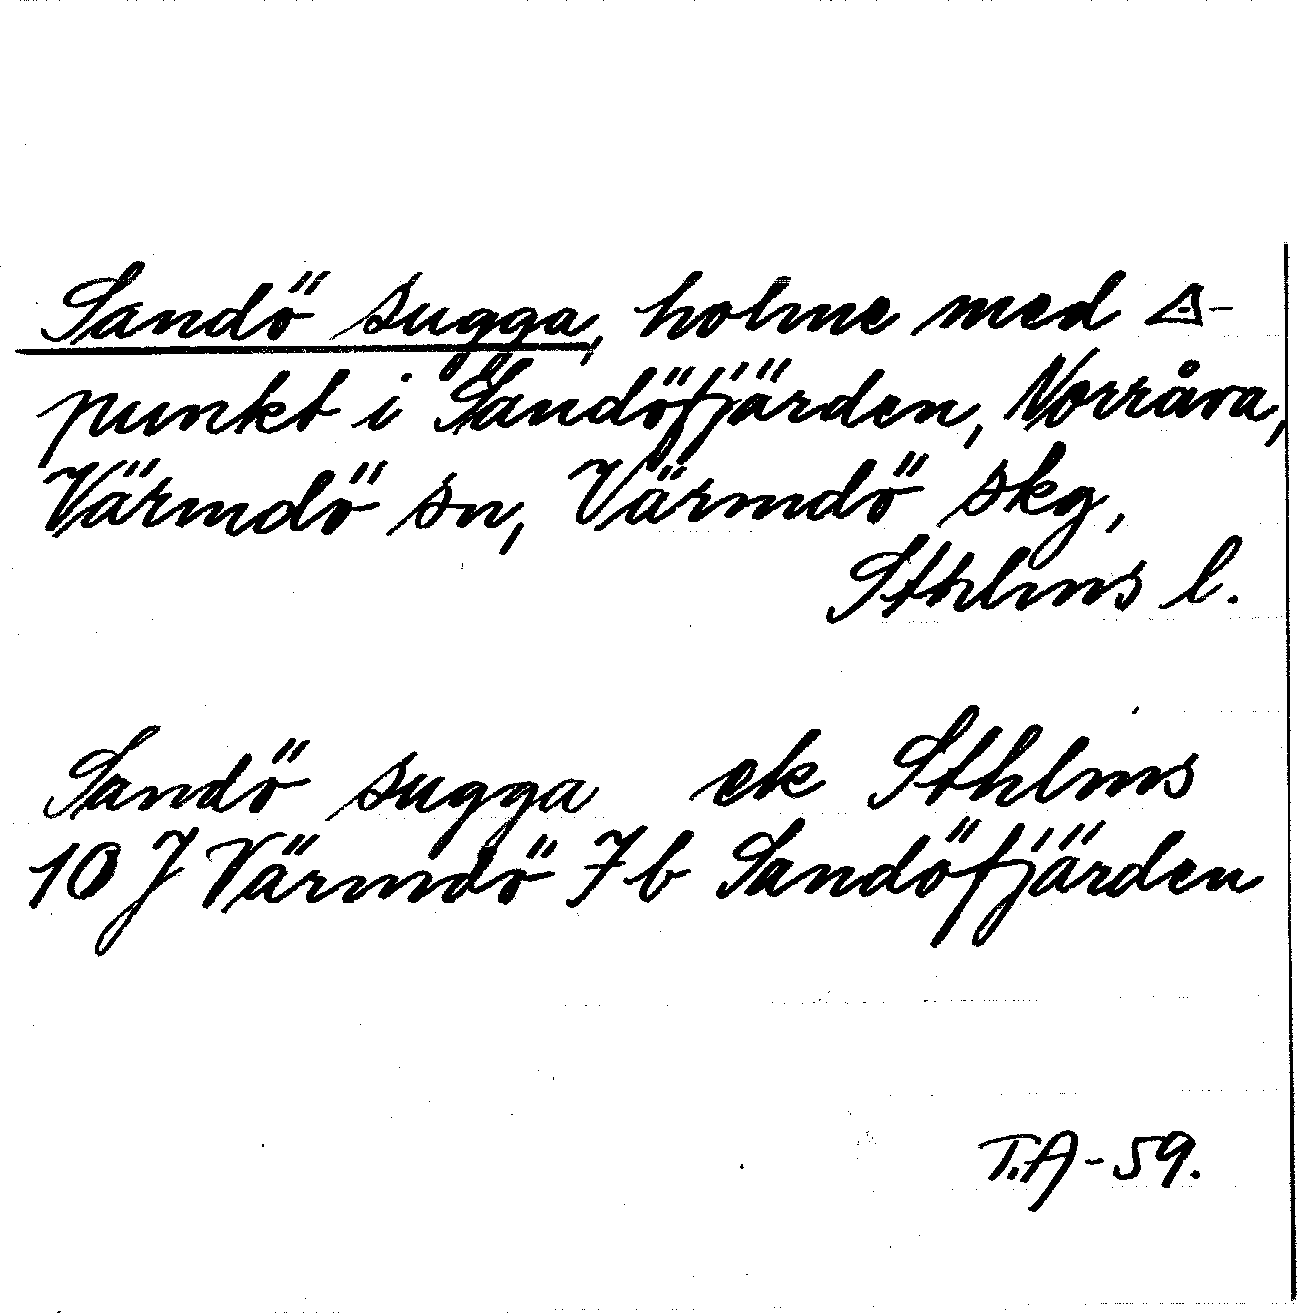 Sandö sugga, holme med △-
punkt i Sandöfjärden, Norråva,
Värmdö sn, Värmdö skg,
Sthlms l.
Sandö sugga ek Sthlms
10 J Värmdö 7 b Sandöfjärden
T.A-59.